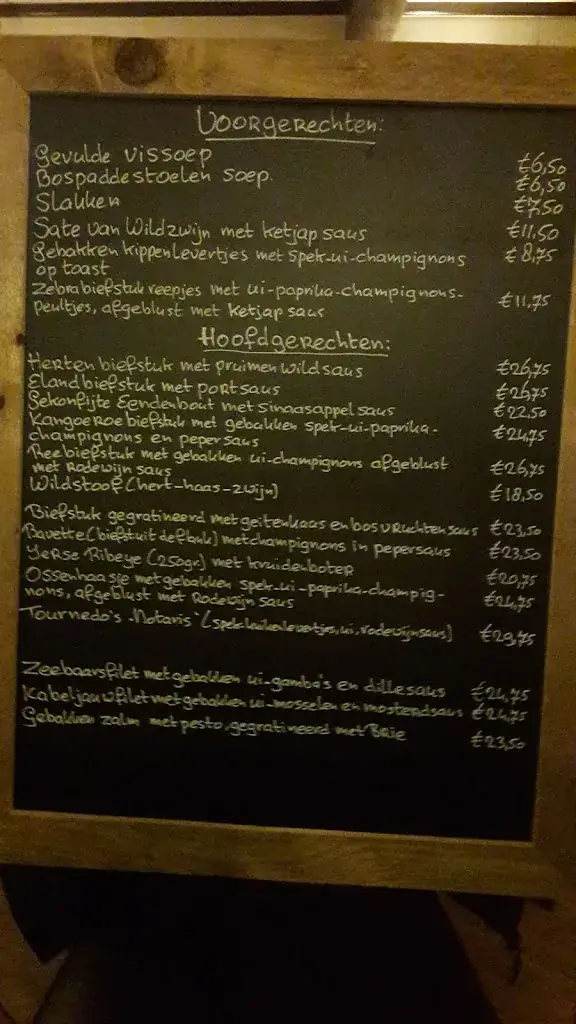 Voorgerechten:
Gevulde vissoep €6,50
Bospaddestoelen soep. €6,50
Slakken €7,50
Sate van Wildzwijn met ketjap saus €11,50
Gebakken kippenlevertjes met spek-ui-champignons €8,75
op toast
Zebrabiefstuk reepjes met ui-paprika-champignons-
peultjes, afgeblust met ketjap saus €11,75
Hoofdgerechten:
Herten biefstuk met pruimen wildsaus €26,75
Elandbiefstuk met portsaus €26,75
Gekonfijte Eendenbout met Sinaasappel saus €22,50
Kangoeroe biefstuk met gebakken spek-ui-paprika-
champignons en peper saus €24,75
Reebiefstuk met gebakken ui-champignons afgeblust
met Rodewijn saus €26,75
Wildstoof (hert-haas-zwijn) €18,50
Biefstuk gegratineerd met geitenkaas en bosvruchten saus €23,50
Bavette (biefstuk uit de flank) met champignons in pepersaus €23,50
Ierse Ribeye (250gr.) met kruidenboter €20,75
Ossenhaasje met gebakken spek-ui-paprika-champig-
nons, afgeblust met Rodewijn saus €24,75
Tournedo's "Notaris" (spek, levertjes, ui, rodewijnsaus) €29,75
Zeebaarsfilet met gebakken ui-gamba's en dillesaus €24,75
Kabeljauwfilet met gebakken ui-mosselen en mosterdsaus €24,75
Gebakken zalm met pesto, gegratineerd met Brie €23,50